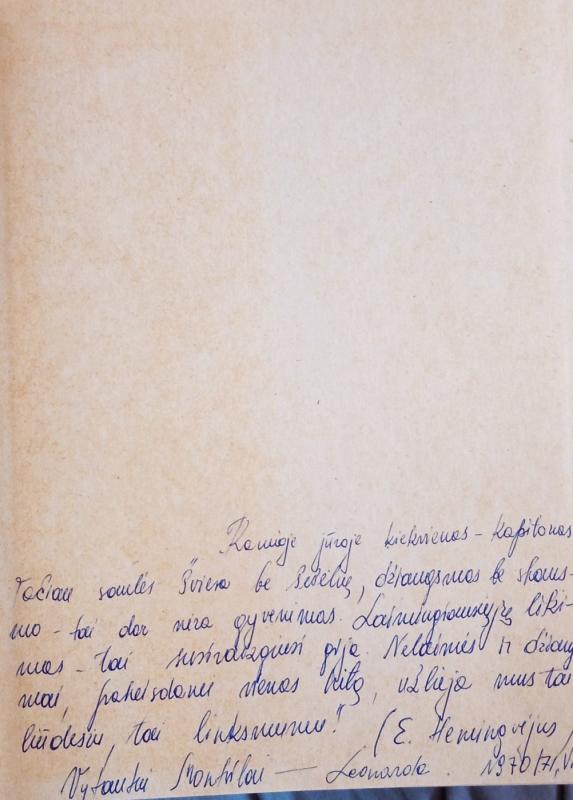 „Ramioje jūroje kiekvienas - kapitonas
Tačiau saulės šviesa be šešėlių, džiaugsmas be skaus-
mo - tai dar nėra gyvenimas. Laimingiausiųjų liki-
mas - tai susiraizgiusi gija. Nelaimės ir džiaug
mai, pakeisdami vienas kitą, užlieja mus tai
liūdesiu, tai linksmumu!" (E. Hemingvėjus)
Vytautui - Leonarda. 1970/71,